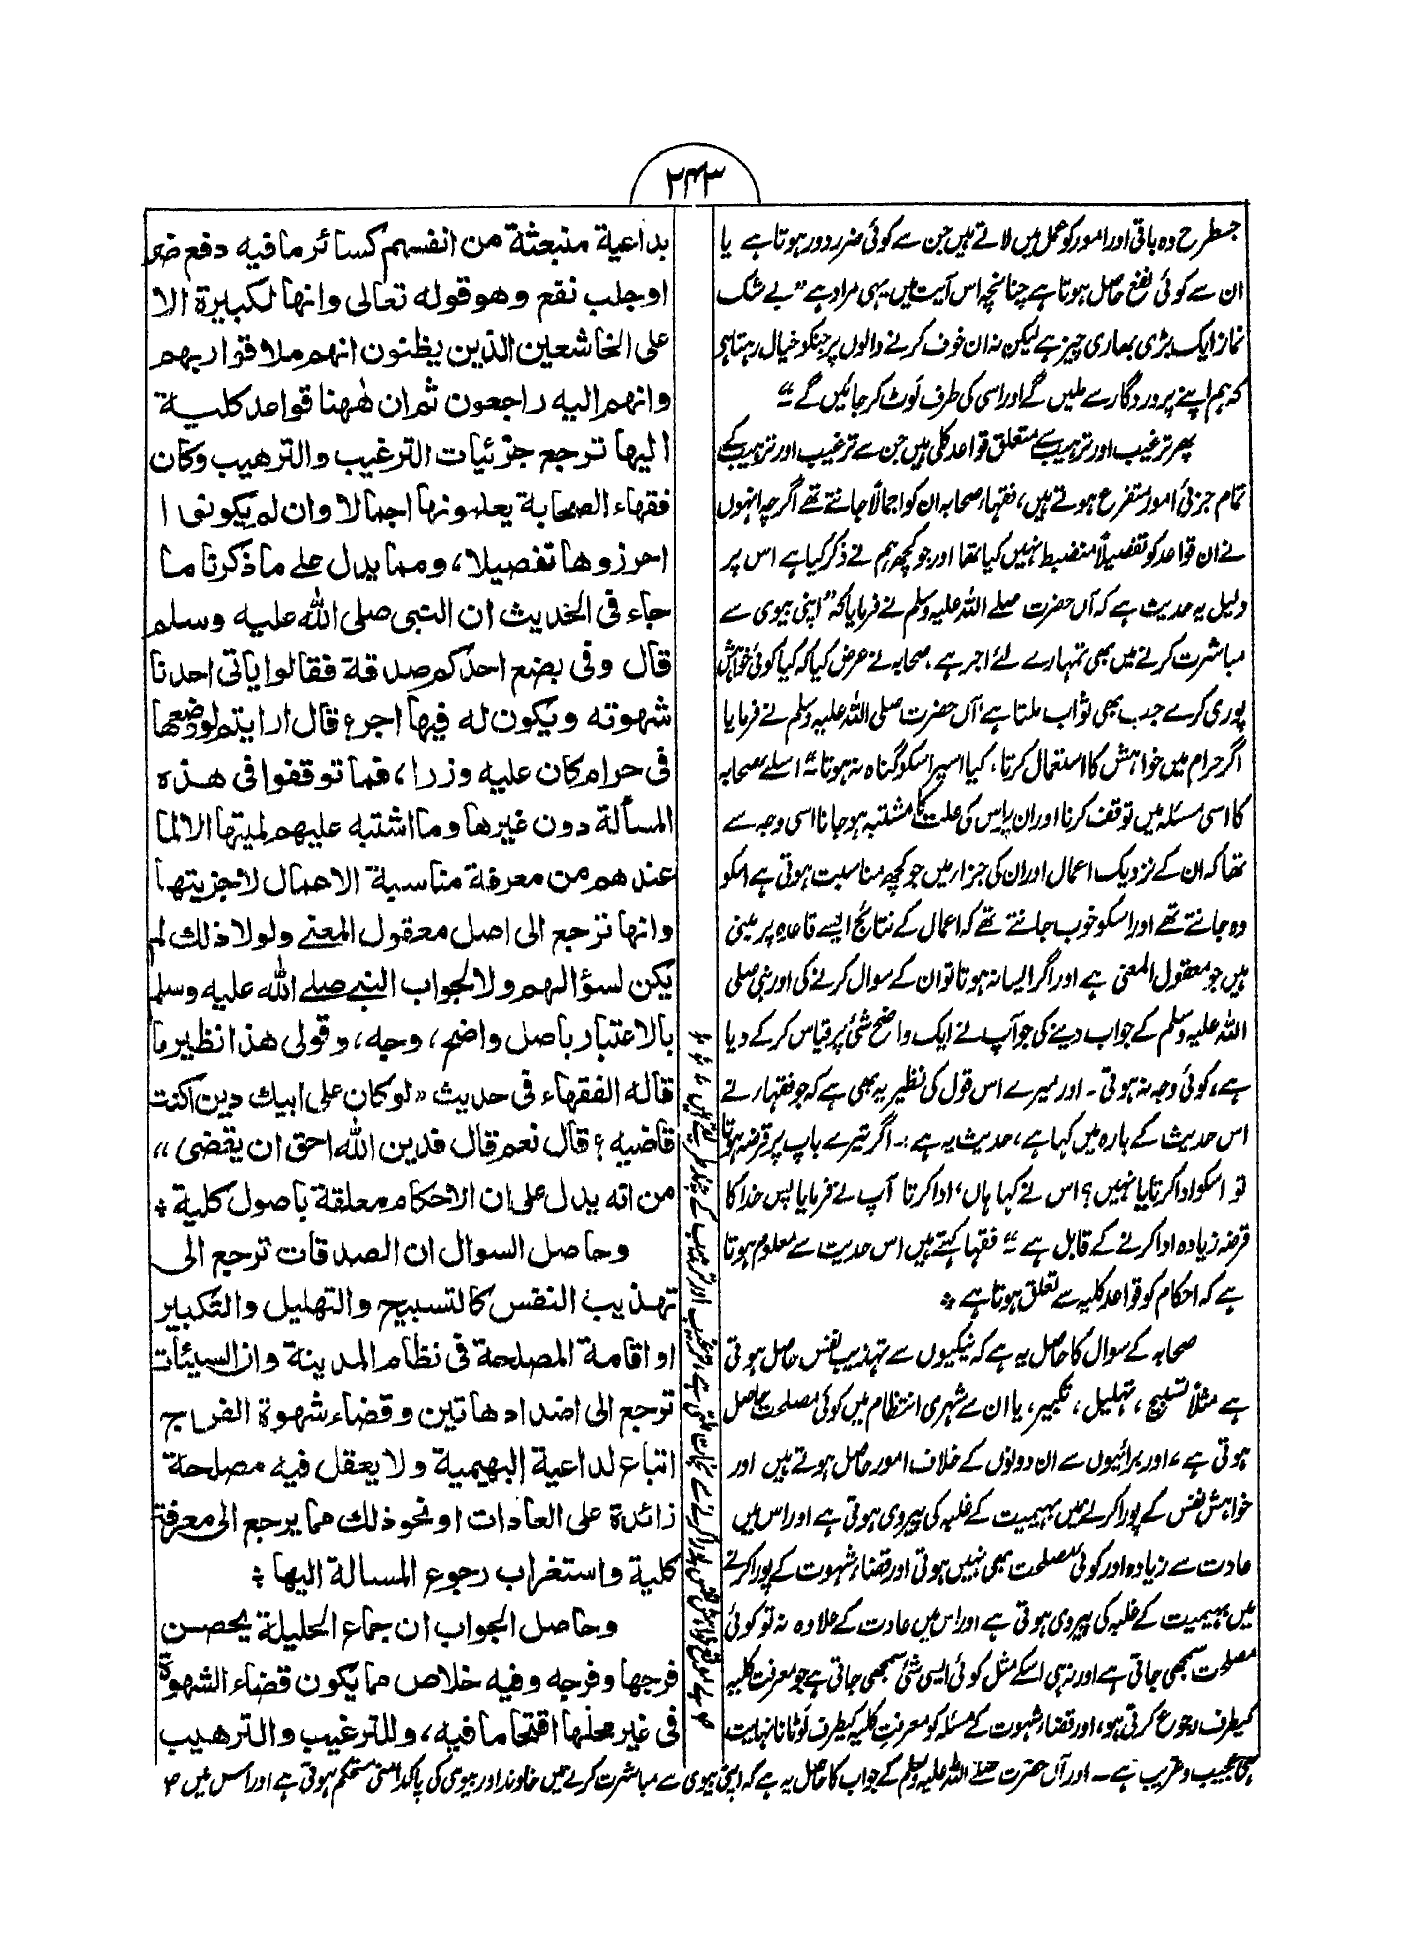 ۲۴۳
جسطرح وہ باقی اور امور کو عمل میں لاتے ہیں جن سے کوئی ضرر دور ہوتا ہے یا
ان سے کوئی نفع حاصل ہوتا ہے چنانچہ اس آیت میں یہی مراد ہے "بے شک
نماز ایک بڑی بھاری چیز ہے لیکن نہ ان خوف کرنے والوں پر جنکو خیال رہتا ہے
کہ ہم اپنے پروردگار سے ملیں گے اور اسی کی طرف لوٹ کر جائیں گے"
پھر ترغیب اور ترہیب سے متعلق قواعد کلی ہیں جن سے ترغیب اور ترہیب کے
تمام جزئی امور متفرع ہوتے ہیں، فقہاء صحابہ ان کو اجمالاً جانتے تھے اگرچہ انہوں
نے ان قواعد کو تفصیلاً منضبط نہیں کیا تھا اور جو کچھ ہم نے ذکر کیا ہے اس پر
دلیل یہ حدیث ہے کہ آں حضرت صلے اللہ علیہ وسلم نے فرمایا کہ "اپنی بیوی سے
مباشرت کرنے میں بھی تمہارے لئے اجر ہے، صحابہ نے عرض کیا کہ کیا کوئی خواہش
پوری کرے جب بھی ثواب ملتا ہے، آں حضرت صلی اللہ علیہ وسلم نے فرمایا
اگر حرام میں خواہش کا استعمال کرتا، کیا اسپر اسکو گناہ نہ ہوتا" اسلئے صحابہ
کا اسی مسئلہ میں توقف کرنا اور ان پر اس کی علت کا مشتبہ ہو جانا اسی وجہ سے
تھا کہ ان کے نزدیک اعمال اور ان کی جزاء میں جو کچھ مناسبت ہوتی ہے اسکو
وہ جانتے تھے اور اسکو خوب جانتے تھے کہ اعمال کے نتائج ایسے قاعدہ پر مبنی
ہیں جو معقول المعنی ہے اور اگر ایسا نہ ہوتا تو ان کے سوال کرنے کی اور نبی صلی
اللہ علیہ وسلم کے جواب دینے کی جو آپ نے ایک واضح شئ پر قیاس کر کے دیا
ہے، کوئی وجہ نہ ہوتی ۔ اور میرے اس قول کی نظیر یہ بھی ہے کہ جو فقہاء نے
اس حدیث کے بارہ میں کہا ہے، حدیث یہ ہے :۔ اگر تیرے باپ پر قرضہ ہوتا
تو اسکو ادا کرتا یا نہیں؟ اس نے کہا ہاں، ادا کرتا آپ نے فرمایا پس خدا کا
قرضہ زیادہ ادا کرنے کے قابل ہے" فقہا کہتے ہیں اس حدیث سے معلوم ہوتا
ہے کہ احکام کو قواعد کلیہ سے تعلق ہوتا ہے ٭
صحابہ کے سوال کا حاصل یہ ہے کہ نیکیوں سے تہذیب نفس حاصل ہوتی
ہے مثلاً تسبیح، تہلیل، تکبیر، یا ان سے شہری انتظام میں کوئی مصلحت حاصل
ہوتی ہے، اور برائیوں سے ان دونوں کے خلاف امور حاصل ہوتے ہیں اور
خواہش نفس کے پورا کرنے میں بہیمیت کے غلبہ کی پیروی ہوتی ہے اور اس میں
عادت سے زیادہ اور کوئی مصلحت بھی نہیں ہوتی اور قضاء شہوت کے پورا کرنے
میں بہیمیت کے غلبہ کی پیروی ہوتی ہے اور اس میں عادت کے علاوہ نہ تو کوئی
مصلحت سمجھی جاتی ہے اور نہ ہی اسکے مثل کوئی ایسی شئ سمجھی جاتی ہے جو معرفت کلیہ
کیطرف رجوع کرتی ہو، اور قضاء شہوت کے مسئلہ کو معرفت کلیہ کیطرف لوٹانا نہایت
ہی عجیب و غریب ہے ۔ اور آں حضرت صلے اللہ علیہ وسلم کے جواب کا حاصل یہ ہے کہ اپنی بیوی سے مباشرت کرنے میں خاوند اور بیوی کی پاکدامنی مستحکم ہوتی ہے اور اس میں
بداعية منبعثة من انفسهم كسائر ما فيه دفع ضر
او جلب نفع وهو قوله تعالى وانها لكبيرة الا
على الخاشعين الذين يظنون انهم ملاقوا ربهم
وانهم اليه راجعون ثم ان ههنا قواعد كلية
اليها ترجع جزئيات الترغيب والترهيب وكان
فقهاء الصحابة يعلمونها اجمالا وان لم يكونوا
احرزوها تفصيلا، ومما يدل على ما ذكرنا ما
جاء فى الحديث ان النبى صلى الله عليه وسلم
قال وفى بضع احدكم صدقة فقالوا ياتى احدنا
شهوته ويكون له فيها اجر؟ قال ارايتم لو وضعها
فى حرام كان عليه وزرا، فما توقفوا فى هذه
المسألة دون غيرها وما اشتبه عليهم لميتها الا لما
عندهم من معرفة مناسبة الاعمال لاجزيتها
وانها ترجع الى اصل معقول المعنے ولولا ذلك لم
يكن لسؤالهم ولا لجواب النبے صلے الله عليه وسلم
بالاعتبار باصل واضح، وجه، وقولى هذا نظير ما
قاله الفقهاء فى حديث "لو كان على ابيك دين اكنت
قاضيه؟ قال نعم قال فدين الله احق ان يقضى"
من انه يدل على ان الاحكام معلقة باصول كلية ٭
وحاصل السوال ان الصدقات ترجع الى
تهذيب النفس كالتسبيح والتهليل والتكبير
او اقامة المصلحة فى نظام المدينة وان السيئات
ترجع الى اضداد هاتين وقضاء شهوة الفراج
اتباع لداعية البهيمية ولا يعقل فيه مصلحة
زائدة على العادات او نحو ذلك مما يرجع الى معرفة
كلية واستغراب رجوع المسالة اليها ٭
وحاصل الجواب ان جماع الحليلة يحصن
فرجها وفرجه وفيه خلاص مما يكون قضاء الشهوة
فى غير محلها اقتحاما فيه، وللترغيب والترهيب